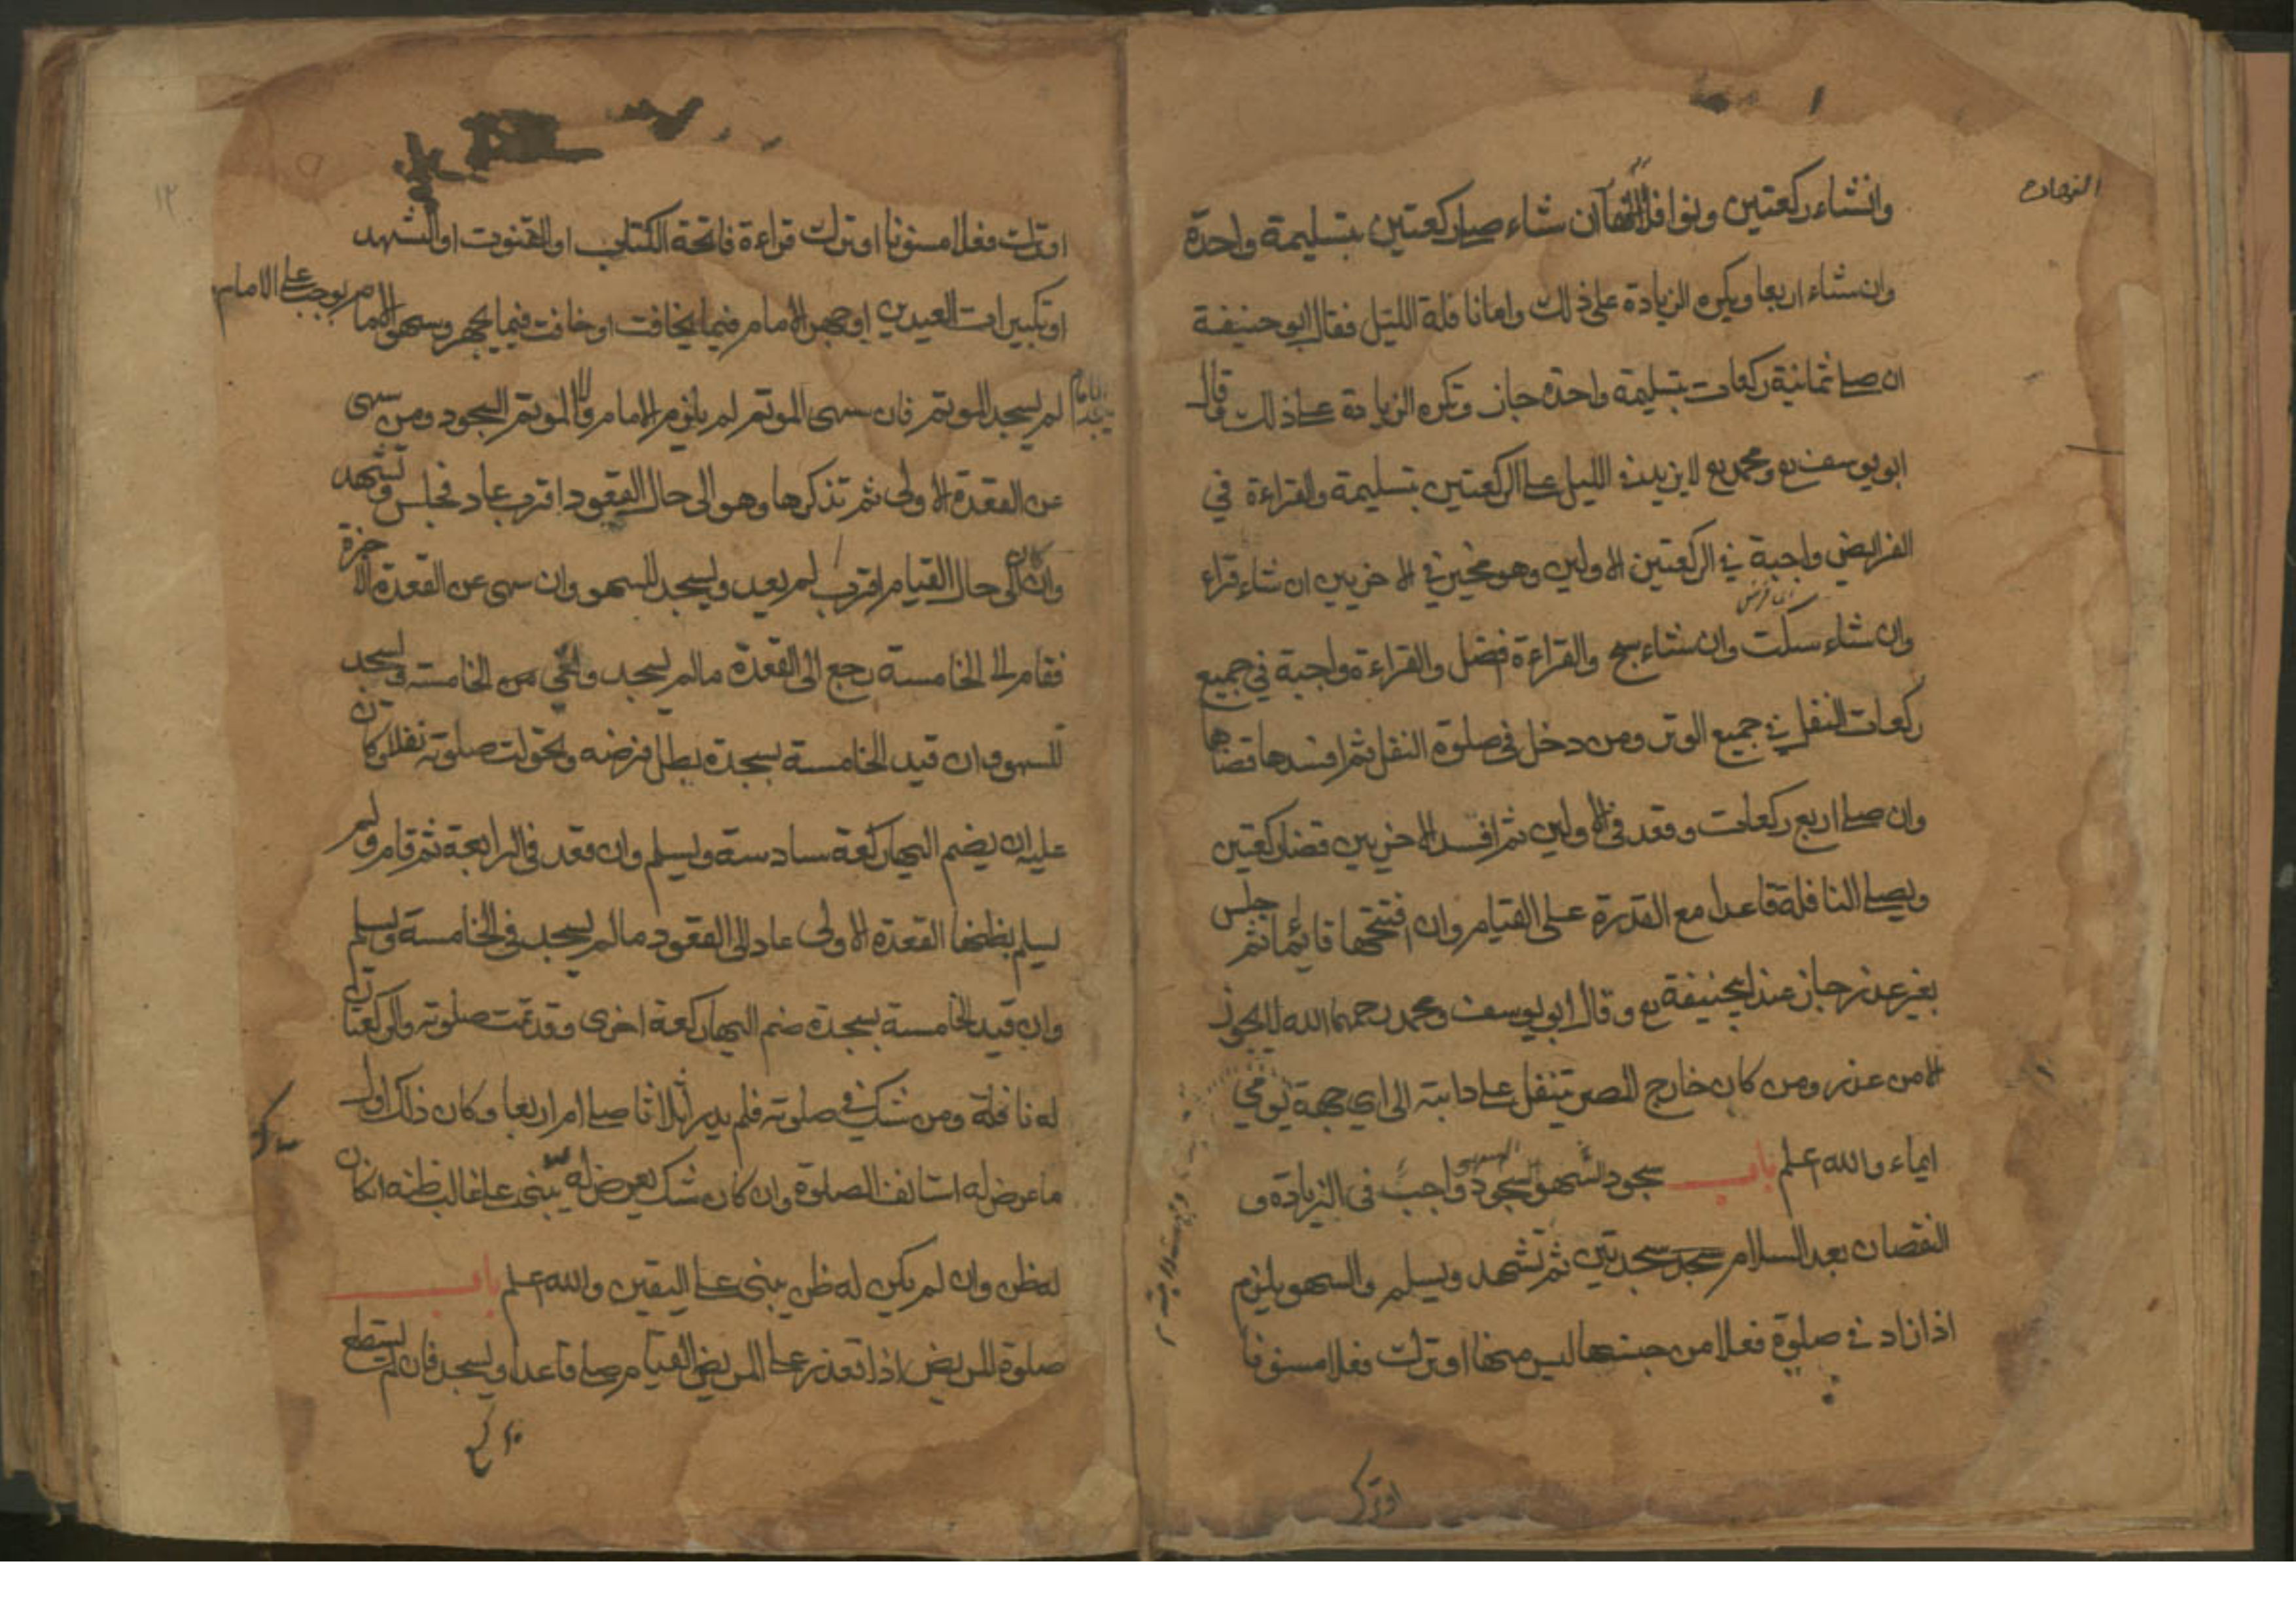 وانشاء ركعتين ونوافل النهار ان شاء صلى ركعتين بتسليمة واحدة
وان شاء اربعا ويكره الزيادة على ذلك واما نافلة الليل فقال ابو حنيفة
ان صلى ثمانية ركعات بتسليمة واحدة جاز وتكره الزيادة على ذلك وقال
ابو يوسف رح ومحمد رح لا يزيد في الليل على الركعتين بتسليمة والقراءة في
الفرايض واجبة في الركعتين الاولين وهو مخير في الاخريين ان شاء قراء
وان شاء سكت وان شاء سبح والقراءة افضل والقراءة واجبة في جميع
ركعات النفل في جميع الوتر ومن دخل في صلوة النفل ثم افسدها قضاها
وان صلى اربع ركعات وقعد في الاولين ثم افسد الاخريين قضا ركعتين
ويصلى النافلة قاعدا مع القدرة على القيام وان افتتحها قائما ثم جلس
بغير عذر جاز عند ابيحنيفة رح وقال ابو يوسف ومحمد رحمهما الله لا يجوز
الا من عذر ومن كان خارج المصر تنفل على دابته الى اي جهة يومي
ايماء والله اعلم باب سجود السهو السجود واجب في الزيادة و
النقصان بعد السلام سجد سجدتين ثم تشهد ويسلم والسهو يلزم
اذا زاد في صلوة فعلا من جنسها ليس منها او ترك فعلا مسنونا
او ترك
او ترك فعلا مسنونا او ترك قراءة فاتحة الكتاب او القنوت او التشهد
او تكبيرات العيدين او جهر الامام فيما يخافت او خافت فيما يجهر وسهو الامام يوجب على الامام
لم يسجد الموتم فان سهى الموتم لم يلزم الامام ولا الموتم السجود ومن سهى
عن القعدة الاولى ثم تذكرها وهو الى حال القعود اقرب عاد فجلس وتشهد
وان كان الى حال القيام اقرب لم يعد ويسجد للسهو وان سهى عن القعدة الاخرة
فقام الى الخامسة رجع الى القعدة ما لم يسجد والغى من الخامسة ويسجد
للسهو وان قيد الخامسة بسجدة بطل فرضه وتحولت صلوته نفلا وكان
عليه ان يضم اليها ركعة سادسة ويسلم وان قعد في الرابعة ثم قام ولم
يسلم بظنها القعدة الاولى عاد الى القعود ما لم يسجد في الخامسة ويسلم
وان قيد الخامسة بسجدة ضم اليها ركعة اخرى وقد تمت صلوته والركعتان
له نافلة ومن شك في صلوته فلم يدر اثلاثا صلى ام اربعا وكان ذلك اول
ما عرض له استانف الصلوة وان كان شك يعرض له يبنى على غالب ظنه ان كان
له ظن وان لم يكن له ظن يبنى على اليقين والله اعلم باب
صلوة المريض اذا تعذر على المريض القيام صلى قاعدا ويسجد فان لم يستطع